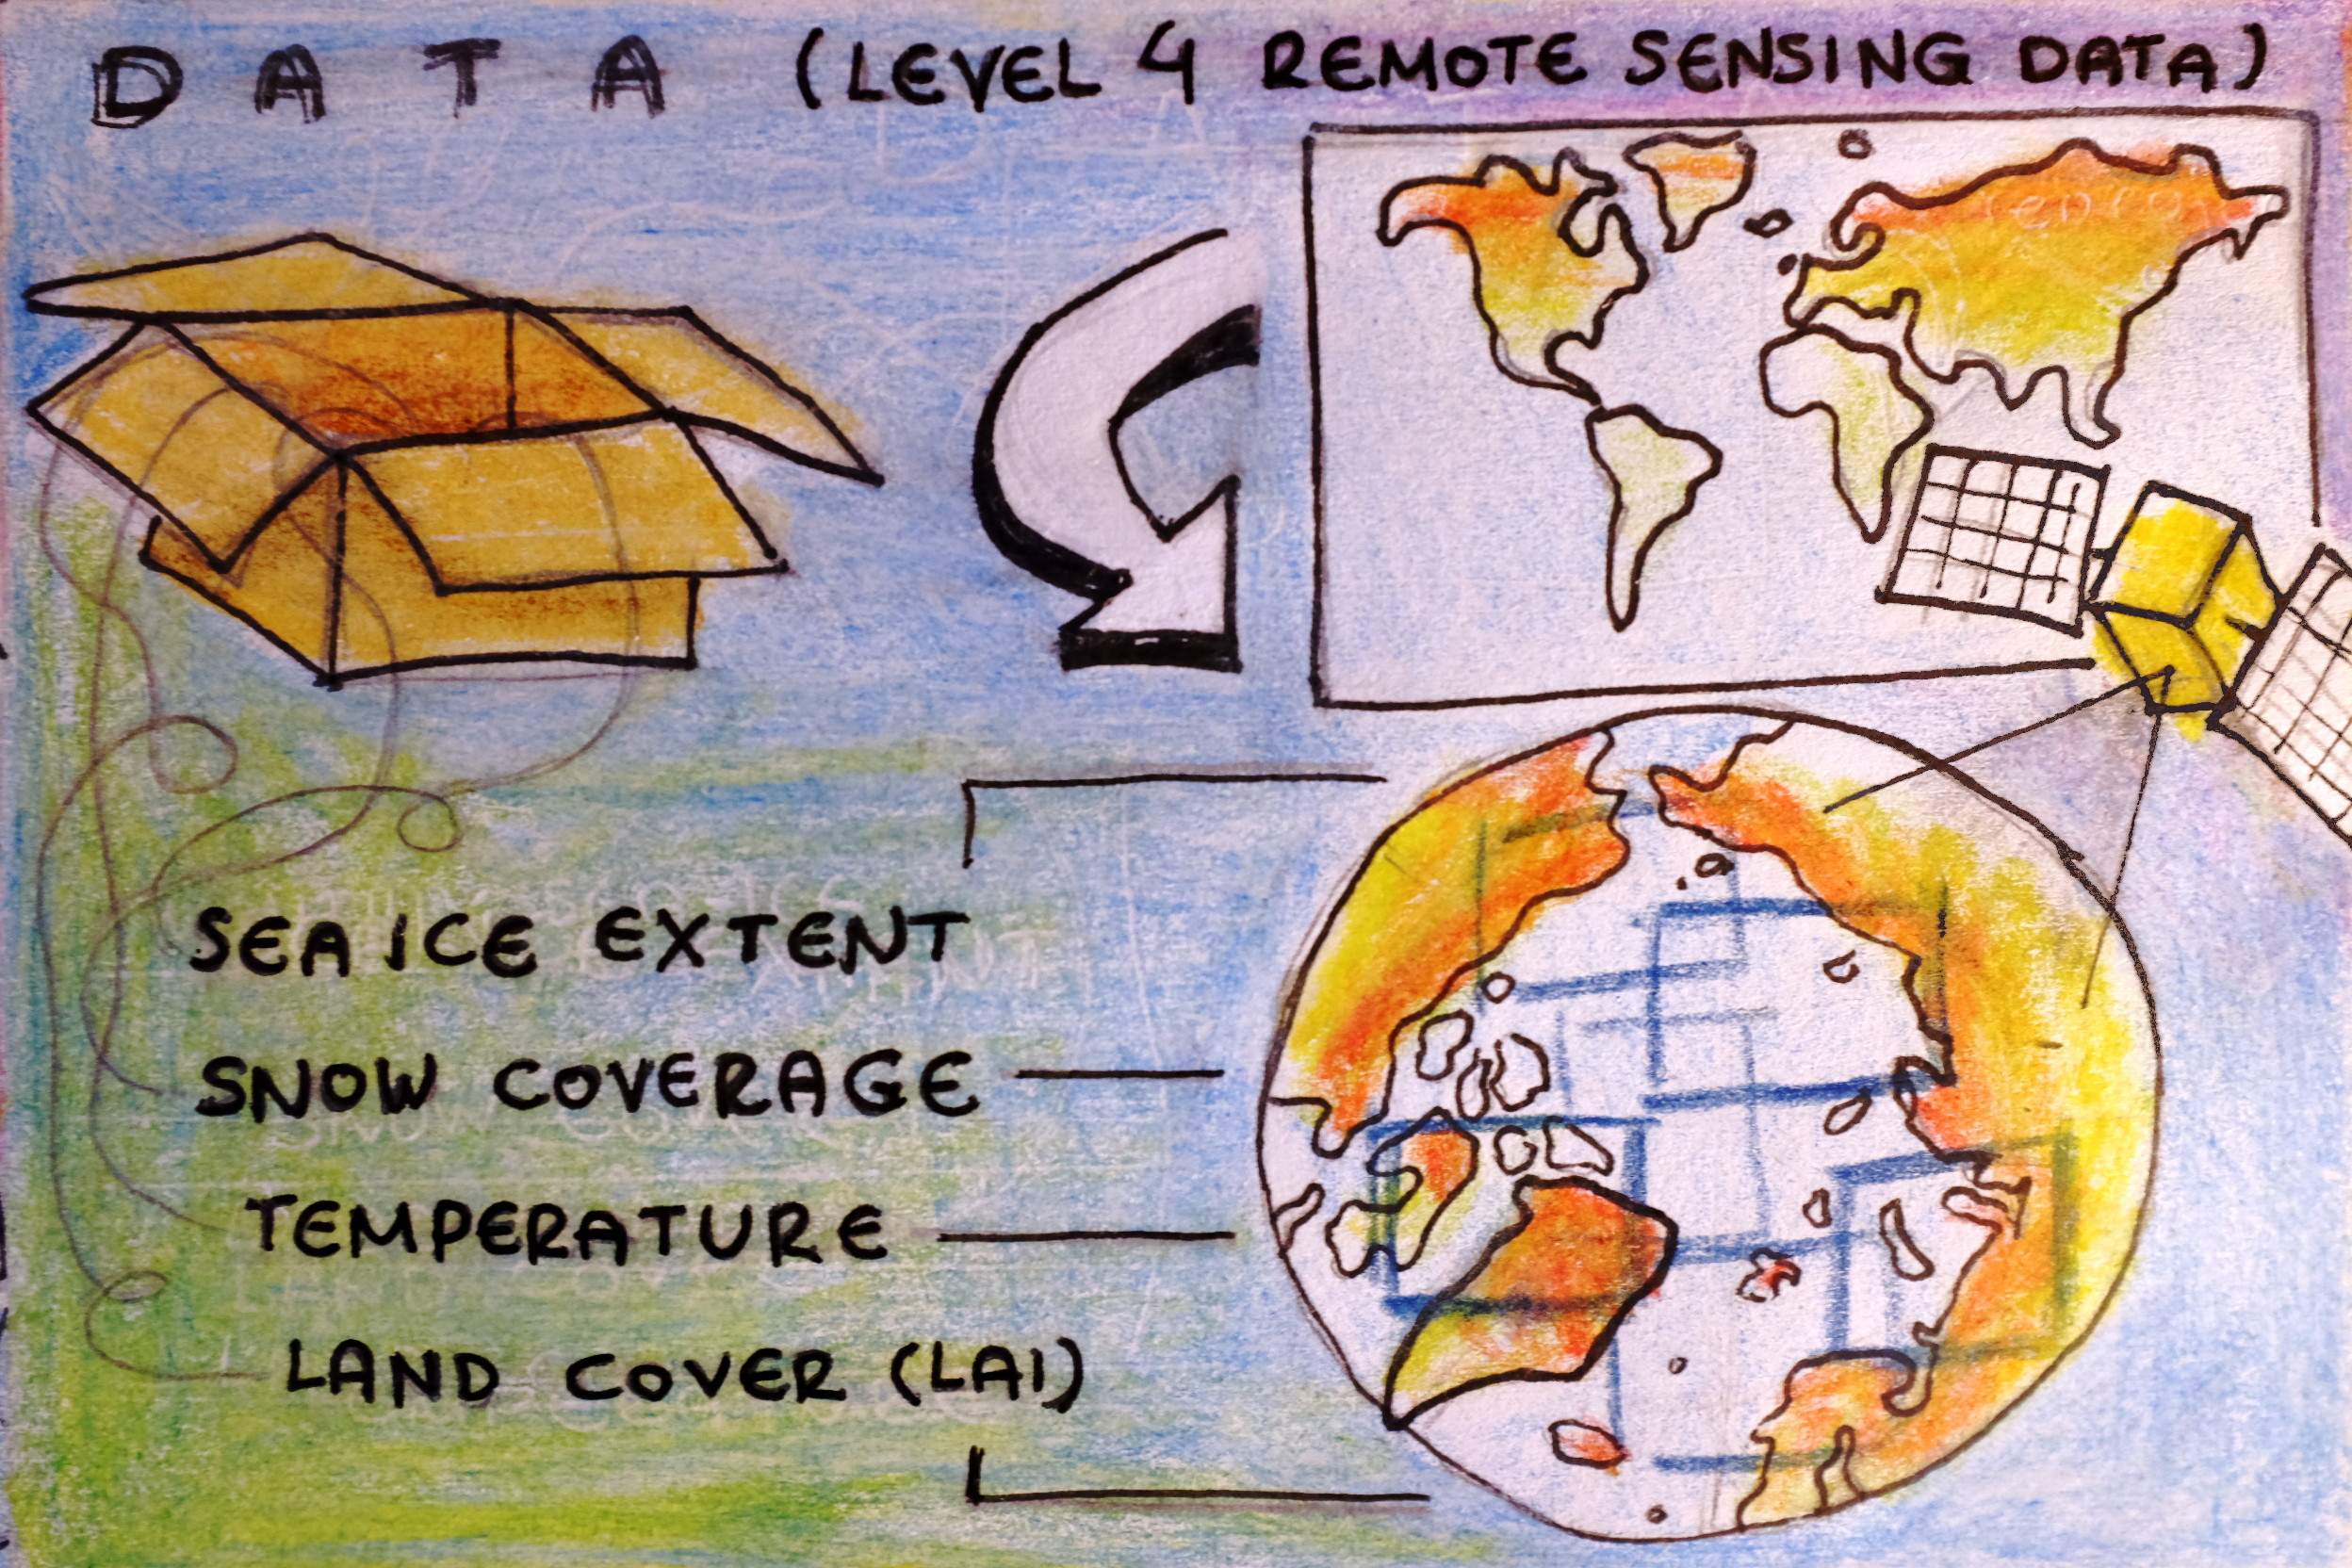 DATA (LEVEL 4 REMOTE SENSING DATA)
SEA ICE EXTENT
SNOW COVERAGE
TEMPERATURE
LAND COVER (LAI)